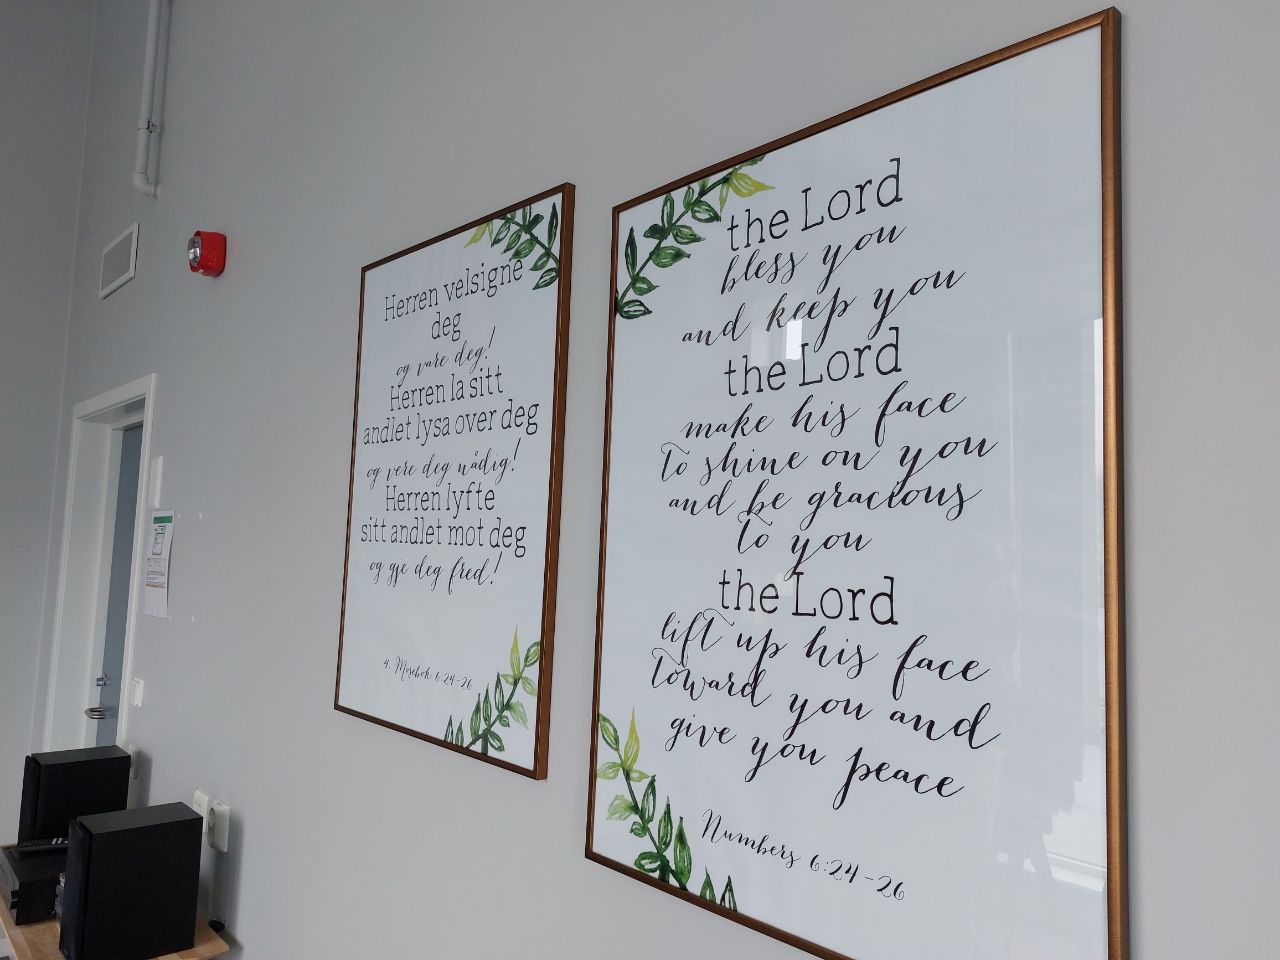 Herren velsigne
deg
og vare deg!
Herren la sitt
andlet lysa over deg
og vere deg nådig!
Herren lyfte
sitt andlet mot deg
og gje deg fred!
4. Mosebok 6:24-26
the Lord
bless you
and keep you
the Lord
make his face
to shine on you
and be gracious
to you
the Lord
lift up his face
toward you and
give you peace
Numbers 6:24-26